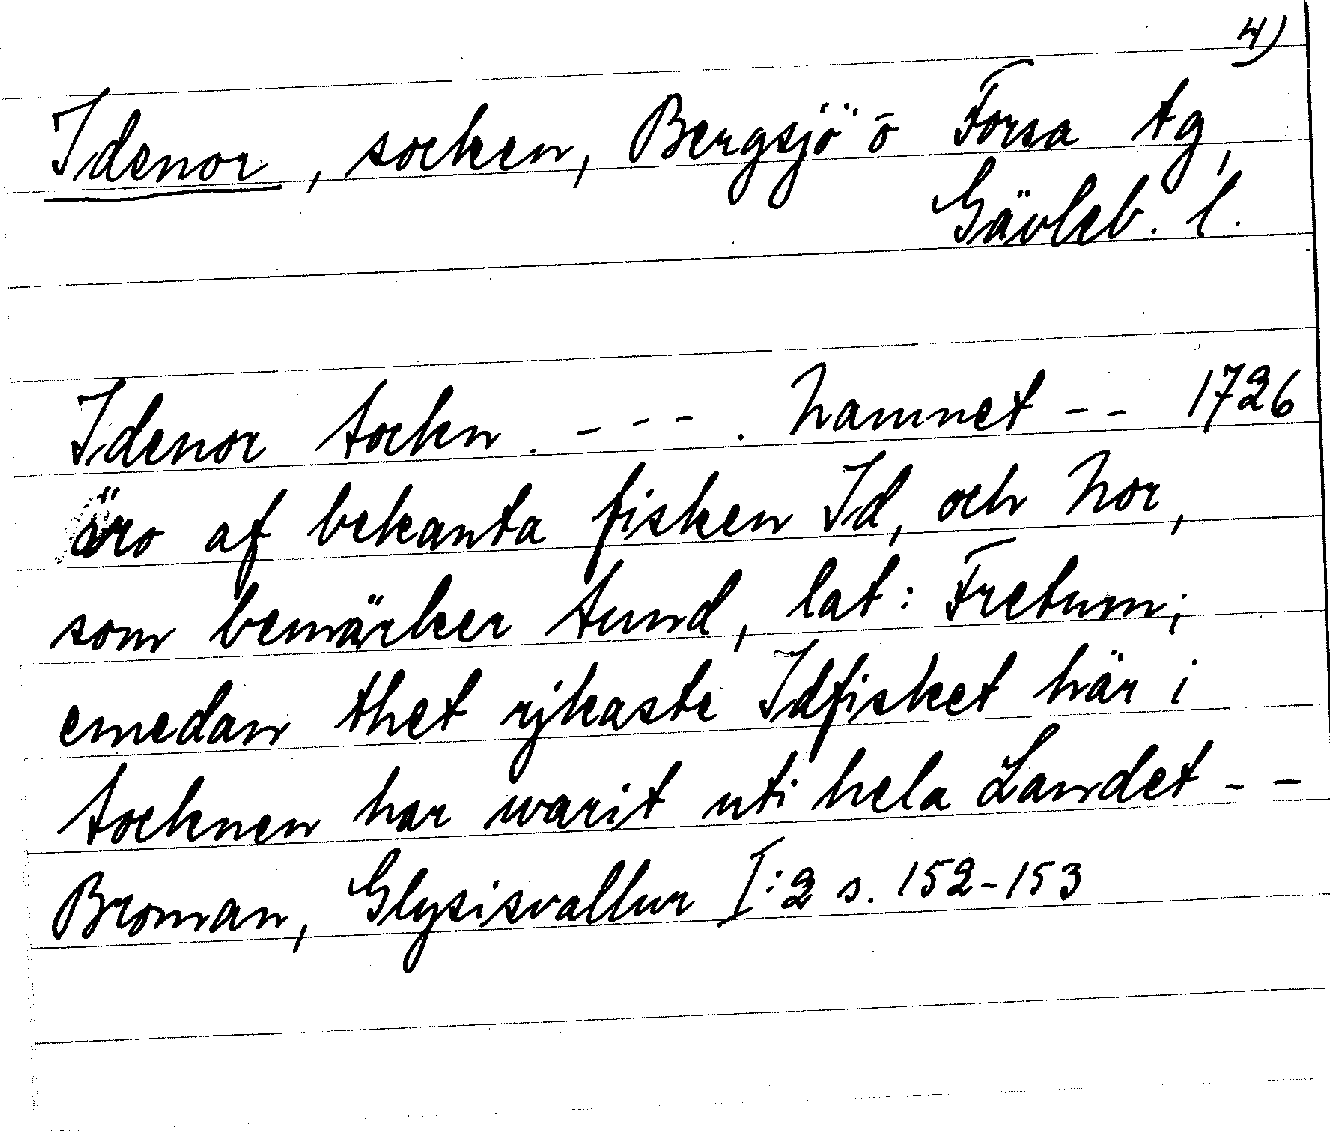 4)
Idenor, socken, Bergsjö o Forsa tg,
Gävleb. l.
Idenor sockn. - - - . Namnet - - 1726
äro af bekanta fisken Id, och Nor,
som bemärker sund, lat: Fretum;
emedan thet rjkaste Idfisket här i
socknen har warit uti hela Landet - -
Broman, Glysisvallur I:2 s. 152-153